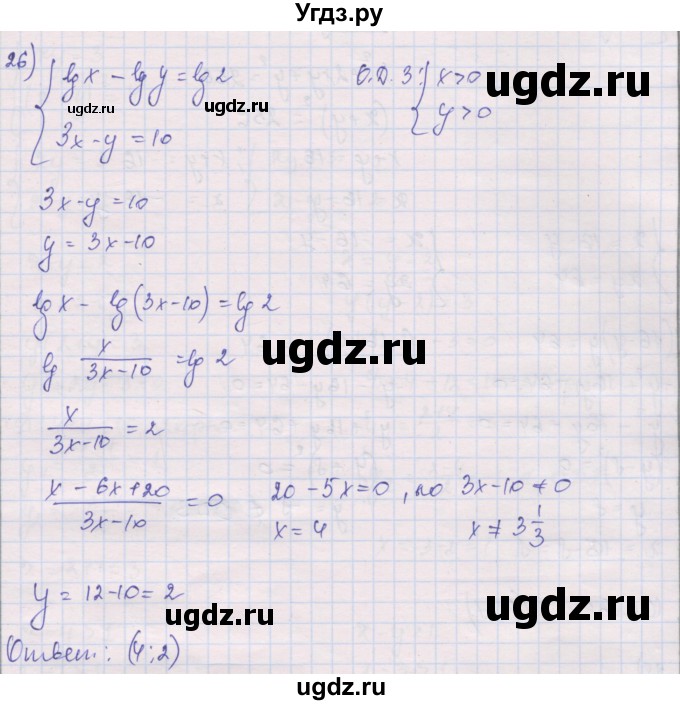 Угдз.ру
26) { lg x - lg y = lg 2    О.Д.З: { x > 0
3x - y = 10    y > 0
ugdz.ru ugdz.ru
3x - y = 10
y = 3x - 10
lg x - lg (3x - 10) = lg 2
lg x/(3x - 10) = lg 2
ugdz.ru
x/(3x - 10) = 2
(x - 6x + 20)/(3x - 10) = 0    20 - 5x = 0, но 3x - 10 ≠ 0
x = 4    x ≠ 3 1/3
y = 12 - 10 = 2
ugdz.ru ugdz.ru
Ответ: (4; 2)
ugdz.ru